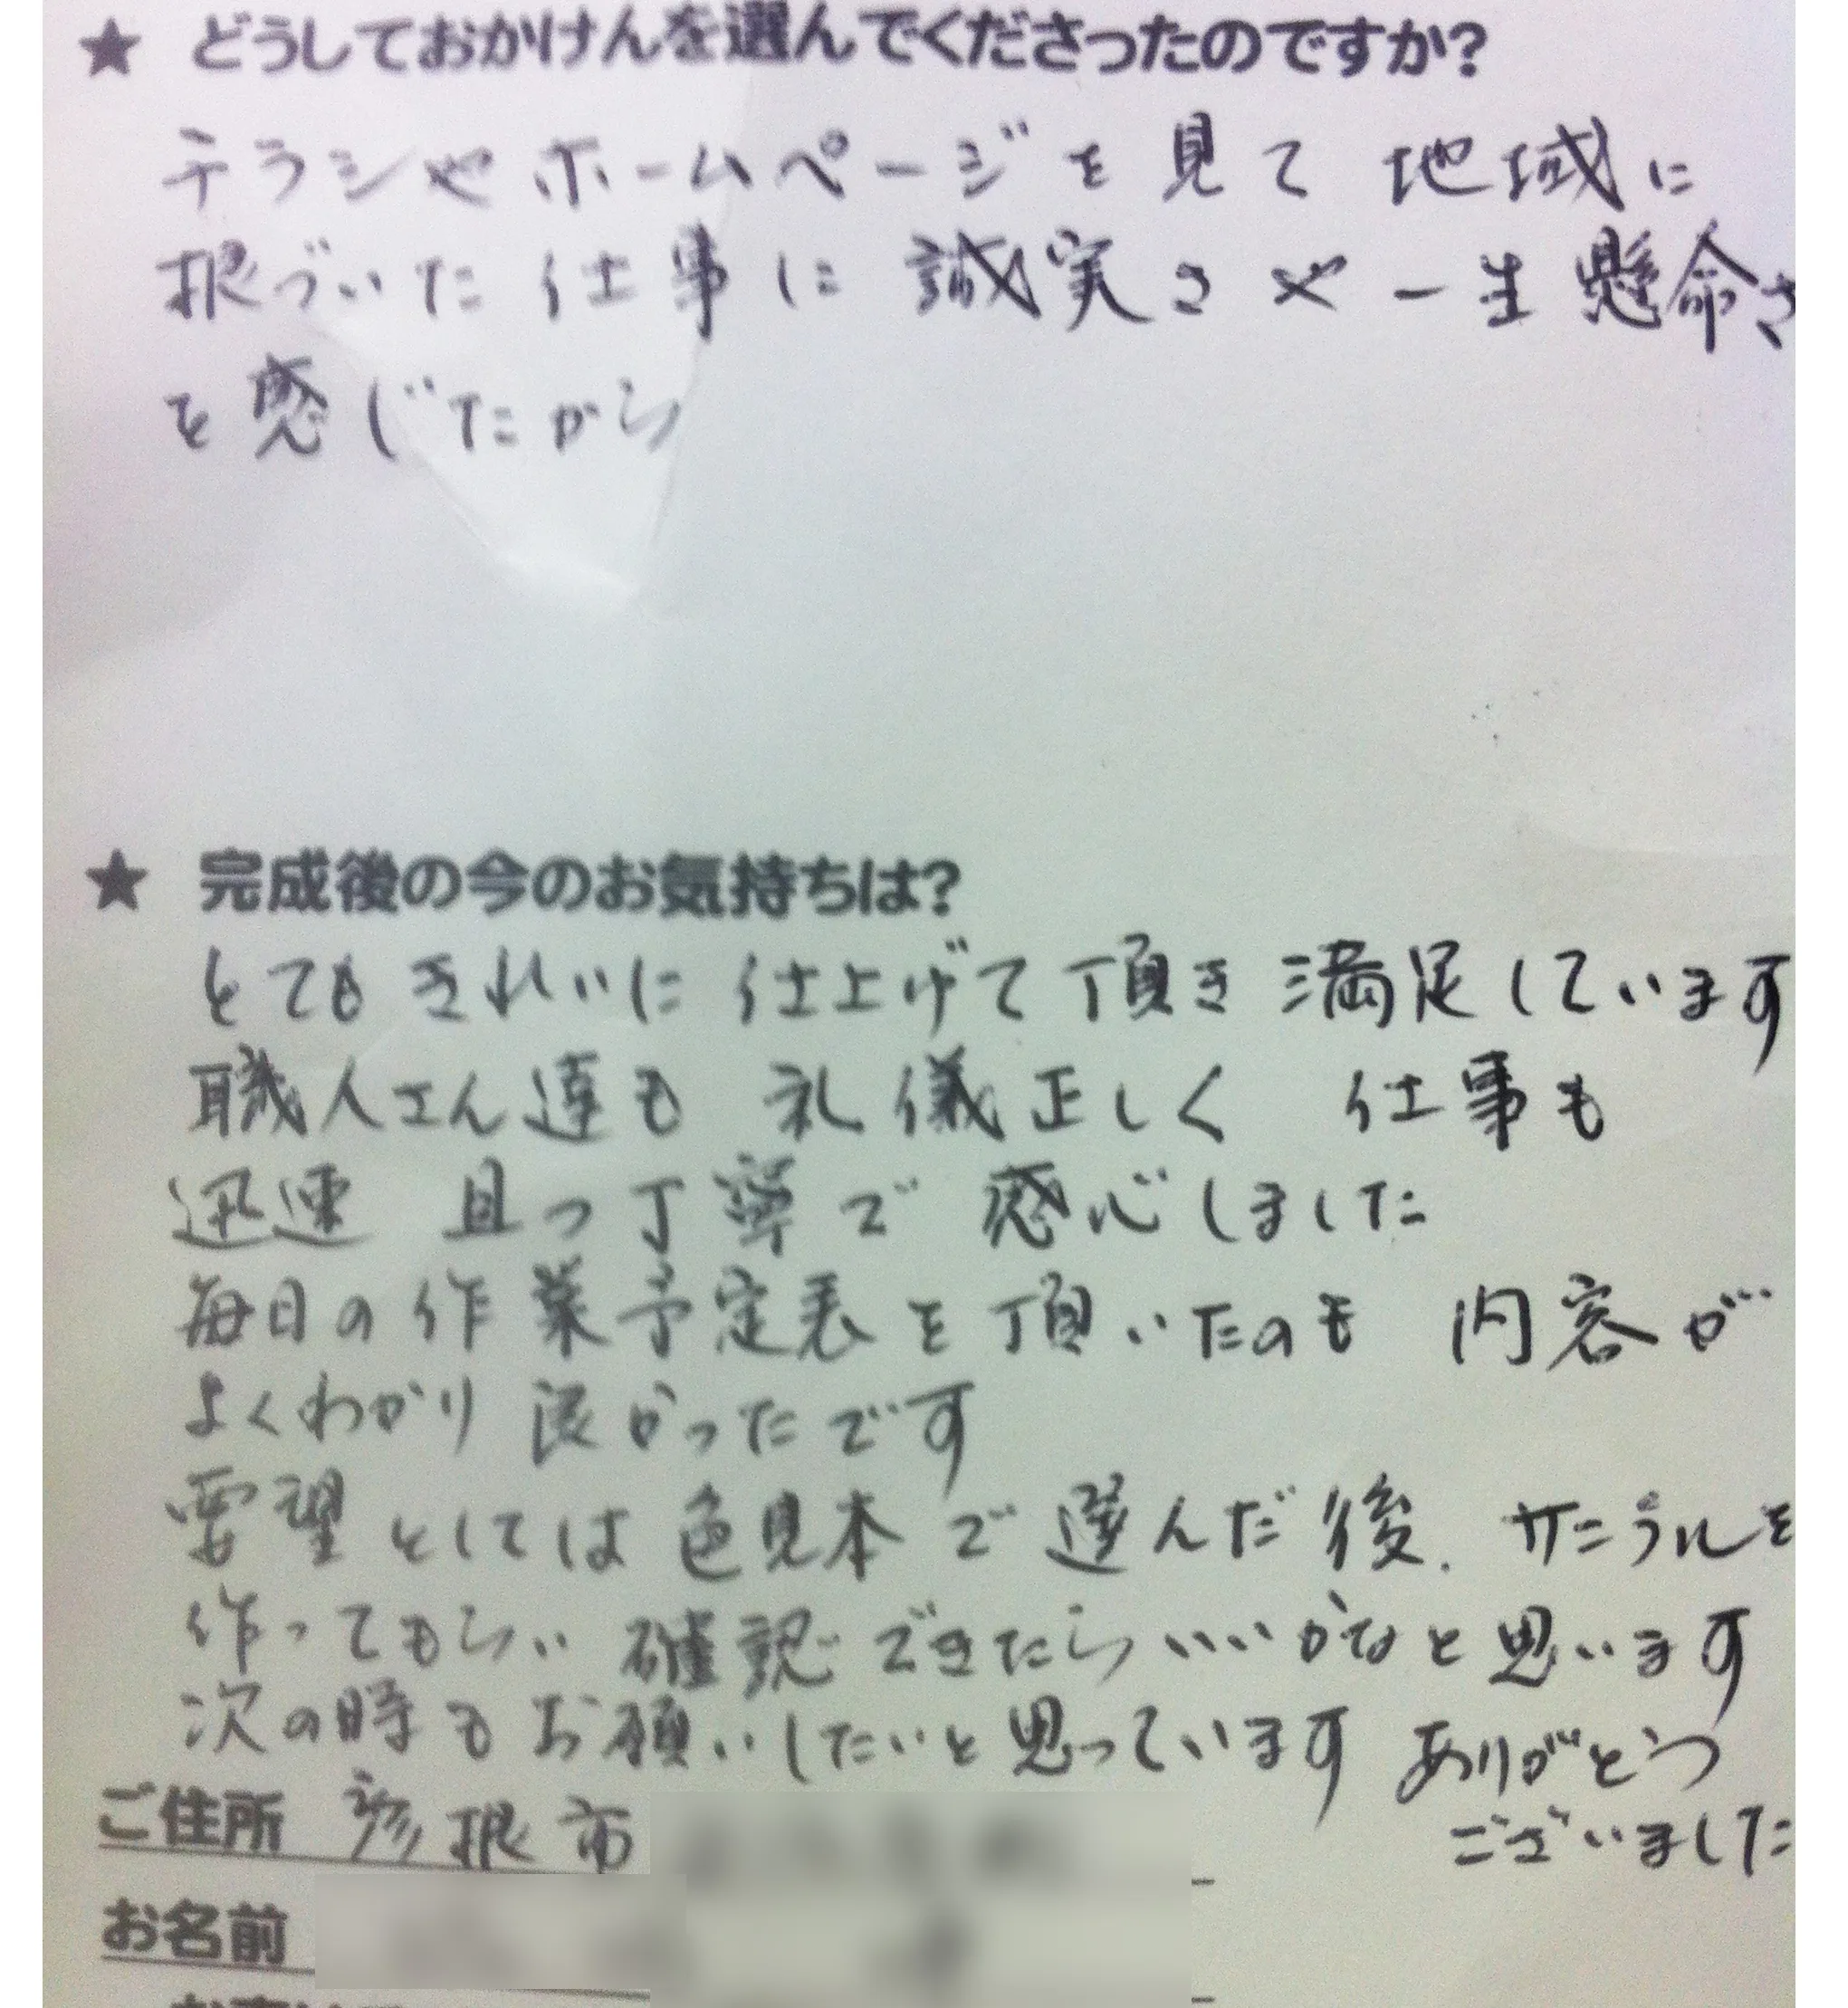 ★ どうしておかけんを選んでくださったのですか?
チラシや ホームページを見て 地域に
根づいた 仕事に 誠実さや 一生懸命さ
を感じたから
★ 完成後の今のお気持ちは?
とても きれいに 仕上げて頂き 満足しています
職人さん達も 礼儀正しく 仕事も
迅速 且つ丁寧で 感心しました
毎日の作業予定表を頂いたのも 内容が
よくわかり 良かったです
要望としては色見本で選んだ後、を
作ってもらい 確認できたらいいかなと思います
次の時もお願いしたいと思っています ありがとう
ございました
ご住所 彦根市
お名前